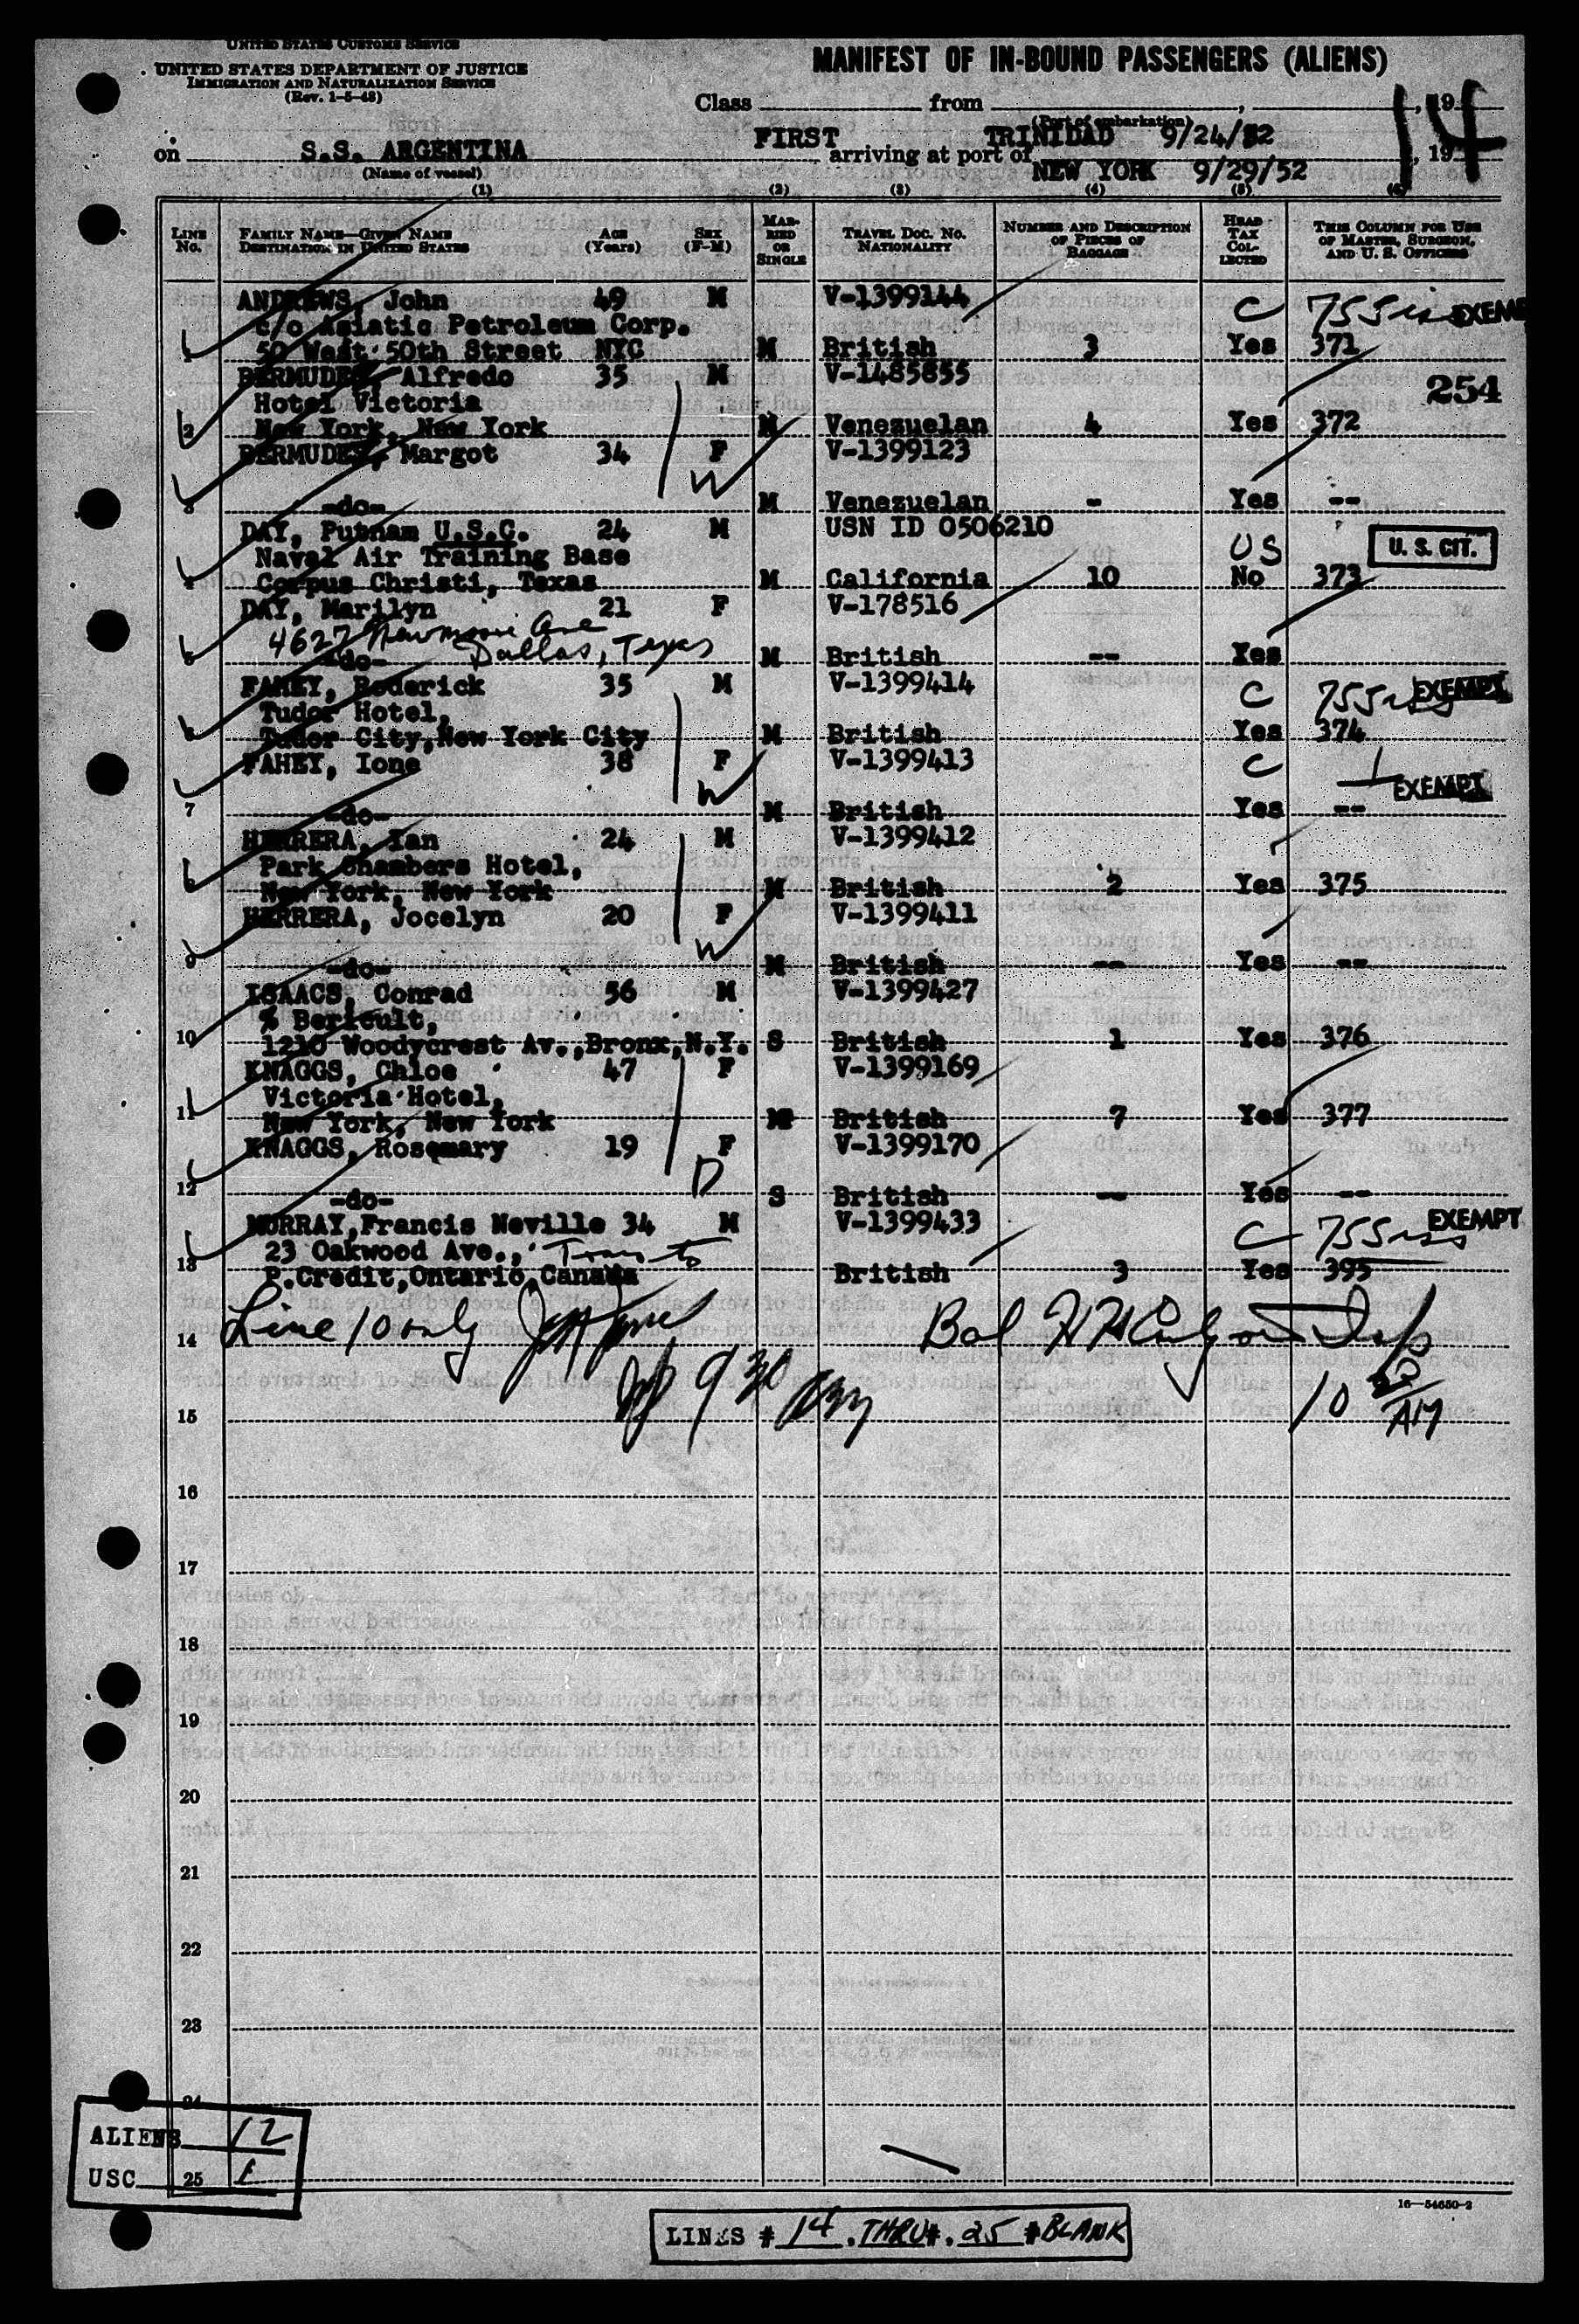 UNITED STATES CUSTOMS SERVICE
UNITED STATES DEPARTMENT OF JUSTICE
IMMIGRATION AND NATURALIZATION SERVICE
(Rev. 1-5-48)
MANIFEST OF IN-BOUND PASSENGERS (ALIENS)
Class FIRST from TRINIDAD 9/24/52, 19
(Port of embarkation)
14
on S.S. ARGENTINA arriving at port of NEW YORK 9/29/52, 19
(Name of vessel)
(1) (2) (3) (4) (5) (6)
LINE No. FAMILY NAME—GIVEN NAME DESTINATION IN UNITED STATES AGE (Years) SEX (F-M) MARRIED OR SINGLE TRAVEL DOC. NO. NATIONALITY NUMBER AND DESCRIPTION OF PIECES OF BAGGAGE HEAD TAX COLLECTED THIS COLUMN FOR USE OF MASTER, SURGEON, AND U. S. OFFICERS
ANDREWS, John 49 M V-1399144 C 755 EXEMPT
c/o Asiatic Petroleum Corp.
1 50 West 50th Street NYC M British 3 Yes 371
BERMUDEZ, Alfredo 35 M V-1485855 254
Hotel Victoria
2 New York, New York M Venezuelan 4 Yes 372
BERMUDEZ, Margot 34 F V-1399123
W
3 -do- M Venezuelan - Yes --
DAY, Putnam U.S.C. 24 M USN ID 0506210
Naval Air Training Base US U. S. CIT.
4 Corpus Christi, Texas M California 10 No 373
DAY, Marilyn 21 F V-178516
4627 Ave
5 -do- Dallas, Texas M British -- Yes
FAHEY, Roderick 35 M V-1399414 C 755 EXEMPT
Tudor Hotel,
6 Tudor City, New York City M British Yes 374
FAHEY, Ione 38 F V-1399413 C EXEMPT
W
7 -do- M British Yes --
HERRERA, Ian 24 M V-1399412
Park Chambers Hotel,
8 New York, New York M British 2 Yes 375
HERRERA, Jocelyn 20 F V-1399411
W
9 -do- M British -- Yes --
ISAACS, Conrad 56 M V-1399427
% Bericult,
10 1210 Woodycrest Av.,Bronx,N.Y. S British 1 Yes 376
KNAGGS, Chloe 47 F V-1399169
Victoria Hotel,
11 New York, New York M British 7 Yes 377
KNAGGS, Rosemary 19 F V-1399170
D
12 -do- S British -- Yes --
MURRAY,Francis Neville 34 M V-1399433 C 755 EXEMPT
23 Oakwood Ave., Trans to
13 P.Credit,Ontario,Canada British 3 Yes 395
14 Line 10 only Bal
9 30 10 20 AM
15
16
17
18
19
20
21
22
23
24
ALIENS 12
USC 1
25
16—54650-2
LINES # 14 THRU #. 25 # BLANK